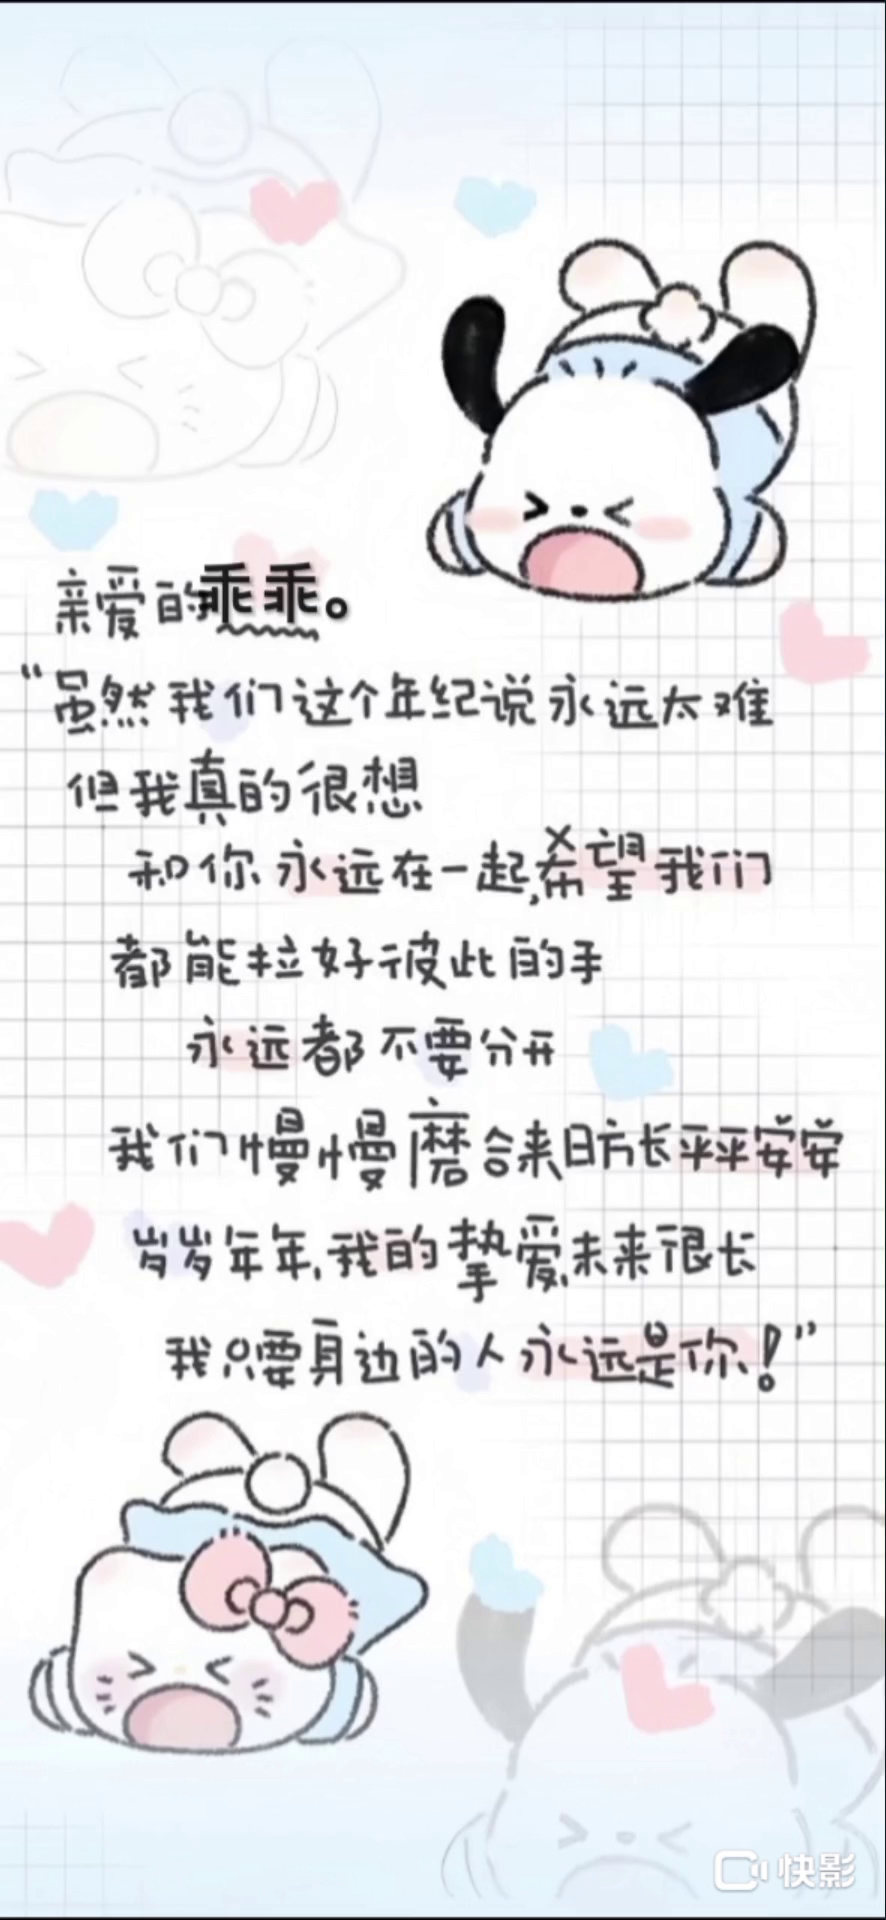 亲爱的乖乖。
“虽然我们这个年纪说永远太难
但我真的很想
和你永远在一起,希望我们
都能拉好彼此的手
永远都不要分开
我们慢慢磨合来日方长平平安安
岁岁年年,我的挚爱,未来很长
我只要身边的人永远是你!”
快影